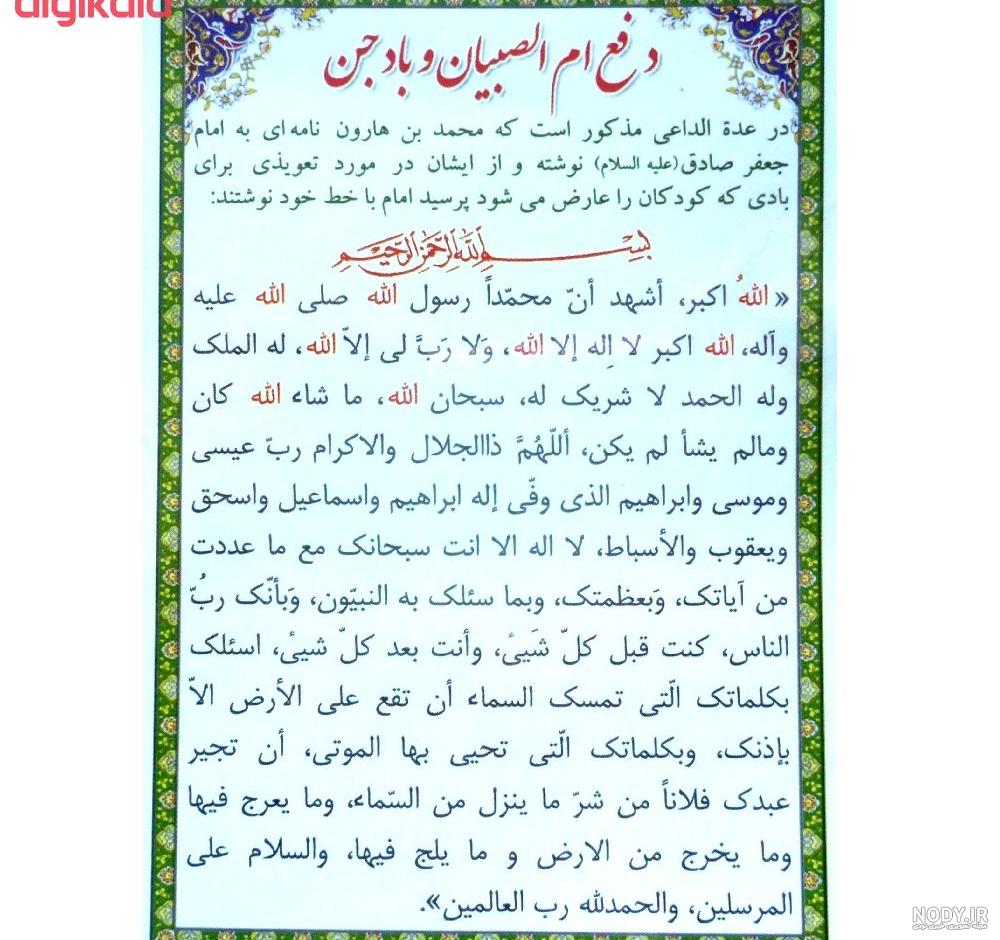 digikala
دفع ام الصبیان و باد جن
در عدة الداعی مذکور است که محمد بن هارون نامه ای به امام
جعفر صادق(علیه السلام) نوشته و از ایشان در مورد تعویذی برای
بادی که کودکان را عارض می شود پرسید امام با خط خود نوشتند:
بسم الله الرحمن الرحیم
«اللهُ اکبر، أشهد أنّ محمّداً رسول الله صلی الله علیه
وآله، الله اکبر لا اِله إلا الله، وَلا رَبَّ لی إلاّ الله، له الملک
وله الحمد لا شریک له، سبحان الله، ما شاء الله کان
ومالم یشأ لم یکن، أللّهُمَّ ذاالجلال والاکرام ربّ عیسی
وموسی وابراهیم الذی وفّی إله ابراهیم واسماعیل واسحق
ویعقوب والأسباط، لا اله الا انت سبحانک مع ما عددت
من آیاتک، وَبعظمتک، وبما سئلک به النبیّون، وَبأنّک ربُّ
الناس، کنت قبل کلّ شَیئ، وأنت بعد کلّ شیئ، اسئلک
بکلماتک الّتی تمسک السماء أن تقع علی الأرض الاّ
بإذنک، وبکلماتک الّتی تحیی بها الموتی، أن تجیر
عبدک فلاناً من شرّ ما ینزل من السّماء، وما یعرج فیها
وما یخرج من الارض و ما یلج فیها، والسلام علی
المرسلین، والحمدلله رب العالمین».
NODY.IR